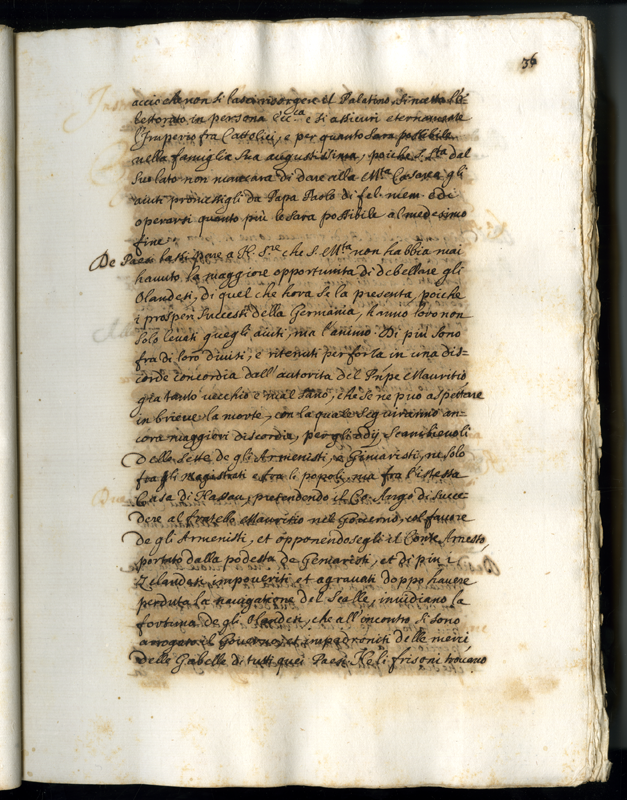 36
accio che non si lasci risorgere il Palatino, si metta l'E-
lettorato in persona Ecc.ca e si assicuri eternamente
l'Imperio fra Cattolici, e per quanto sara possibile
nella famiglia sua augustissima, poiche S. Sta dal
suo lato non mancara di dare alla Mta Cesarea gli
aiuti promessigli da Papa Paolo di fel. mem. e di
operarsi quanto più le sara possibile al medesimo
fine.
De Paesi bassi pare a N. Sre che S. Mta non habbia mai
havuto la maggiore opportunita di debellare gli
Olandesi, di quel che hora se la presenta, poiche
i prosperi successi della Germania, hanno loro non
solo levati quegli aiuti, ma l'animo. Di più sono
fra di loro divisi, e ritenuti per forza in una dis-
corde concordia dall'autorita del Pnpe Mauritio
gia tanto vecchio e mal sano, che se ne può aspettare
in brieve la morte, con la quale seguiranno an-
cora maggiori discordie, per gli odij scambievoli
delle Sette de gli Armenisti, e Gomaristi, ne solo
fra gli Magistrati e fra li popoli, ma fra l'istessa
Casa di Nassau, pretendendo il Co: Arigo di succe-
dere al fratello Mauritio nel Governo, col favore
de gli Armenisti, et opponendosegli il Conte Arnesto,
portato dalla podesta de Gomaristi, et di più i
Zelandesi impoveriti et agravati doppo havere
perduta la navigatione del Scalle, invidiano la
fortuna de gli Olandesi, che all'incontro si sono
arrogato il Governo, et impadroniti delle
delle Gabelle di tutti quei Paesi. Ne li frisoni trovano